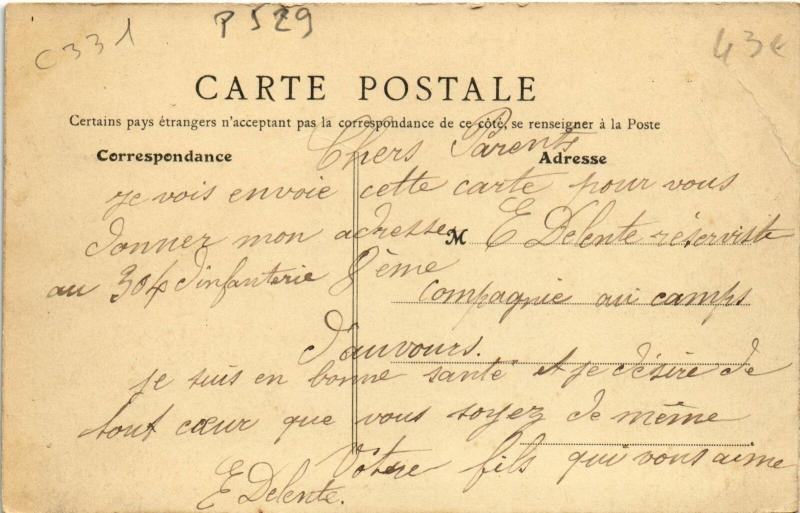 C331
P529
43€
CARTE POSTALE
Certains pays étrangers n'acceptant pas la correspondance de ce côté, se renseigner à la Poste
Correspondance
Adresse
Chers Parents
je vois envoie cette carte pour vous
donner mon adresse M E Delente réserviste
au 304 d'infanterie 8ème
Compagnie au camps
d'auvours.
je suis en bonne santé et je désire de
tout cœur que vous soyez de même
Votre fils qui vous aime
E Delente.